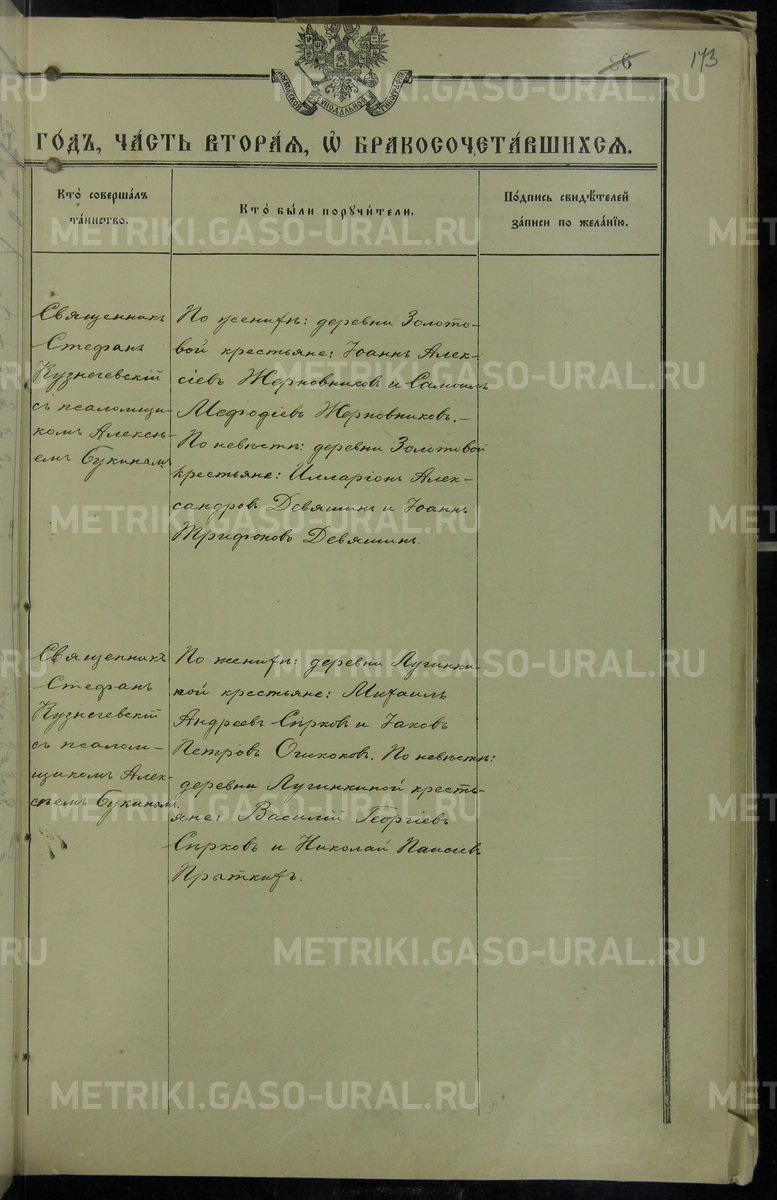 86 173
МОСКОВСКОЙ СѴНОДАЛЬНОЙ ТИПОГРАФІИ
ГО́ДЪ, ЧА́СТЬ ВТОРА́Ѧ, Ѽ БРАКОСОЧЕТА́ВШИХСѦ.
Кто̀ соверша́лъ
та́инство.
Кто̀ бы́ли порꙋчи́тели.
По́дпись свидѣ́телей
за́писи по жела́нїю.
Священникъ
Стефанъ
Кузнечевскій
съ псаломщи-
комъ Алексѣ-
емъ Букинымъ
По женихѣ: деревни Золото-
вой крестьяне: Іоаннъ Алек-
сіевъ Жерновниковъ и Самоилъ
Меѳодіевъ Жерновниковъ.-
По невѣстѣ: деревни Золотовой
крестьяне: Илларіонъ Алек-
сандровъ Девяшинъ и Іоаннъ
Трифоновъ Девяшинъ.
Священникъ
Стефанъ
Кузнечевскій
съ псалом-
щикомъ Алек-
сѣемъ Букинымъ
По женихѣ: деревни Лугинки-
ной крестьяне: Михаилъ
Андреевъ Сырковъ и Іаковъ
Петровъ По невѣстѣ:
деревни Лугинкиной кресть-
яне: Василій Георгіевъ
Сырковъ и Николай Паисіевъ
METRIKI.GASO-URAL.RU